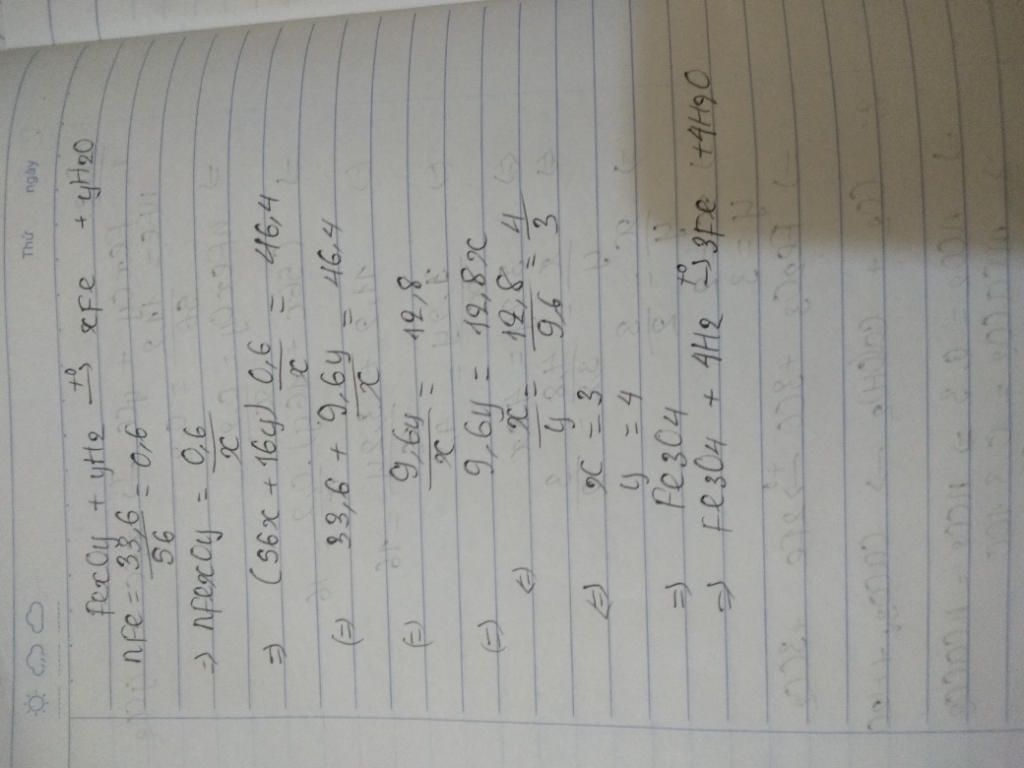 Thứ ngày
FexOy + yH2 t°→ xFe + yH2O
nFe = 33,6/56 = 0,6
=> nFexOy = 0,6/x
=> (56x + 16y) 0,6/x = 46,4
(=) 33,6 + 9,6y/x = 46,4
(=) 9,6y/x = 12,8
(=) 9,6y = 12,8x
<=) x/y = 12,8/9,6 = 4/3
<=) x = 3
y = 4
=) Fe3O4
=) Fe3O4 + 4H2 t°→ 3Fe + 4H2O